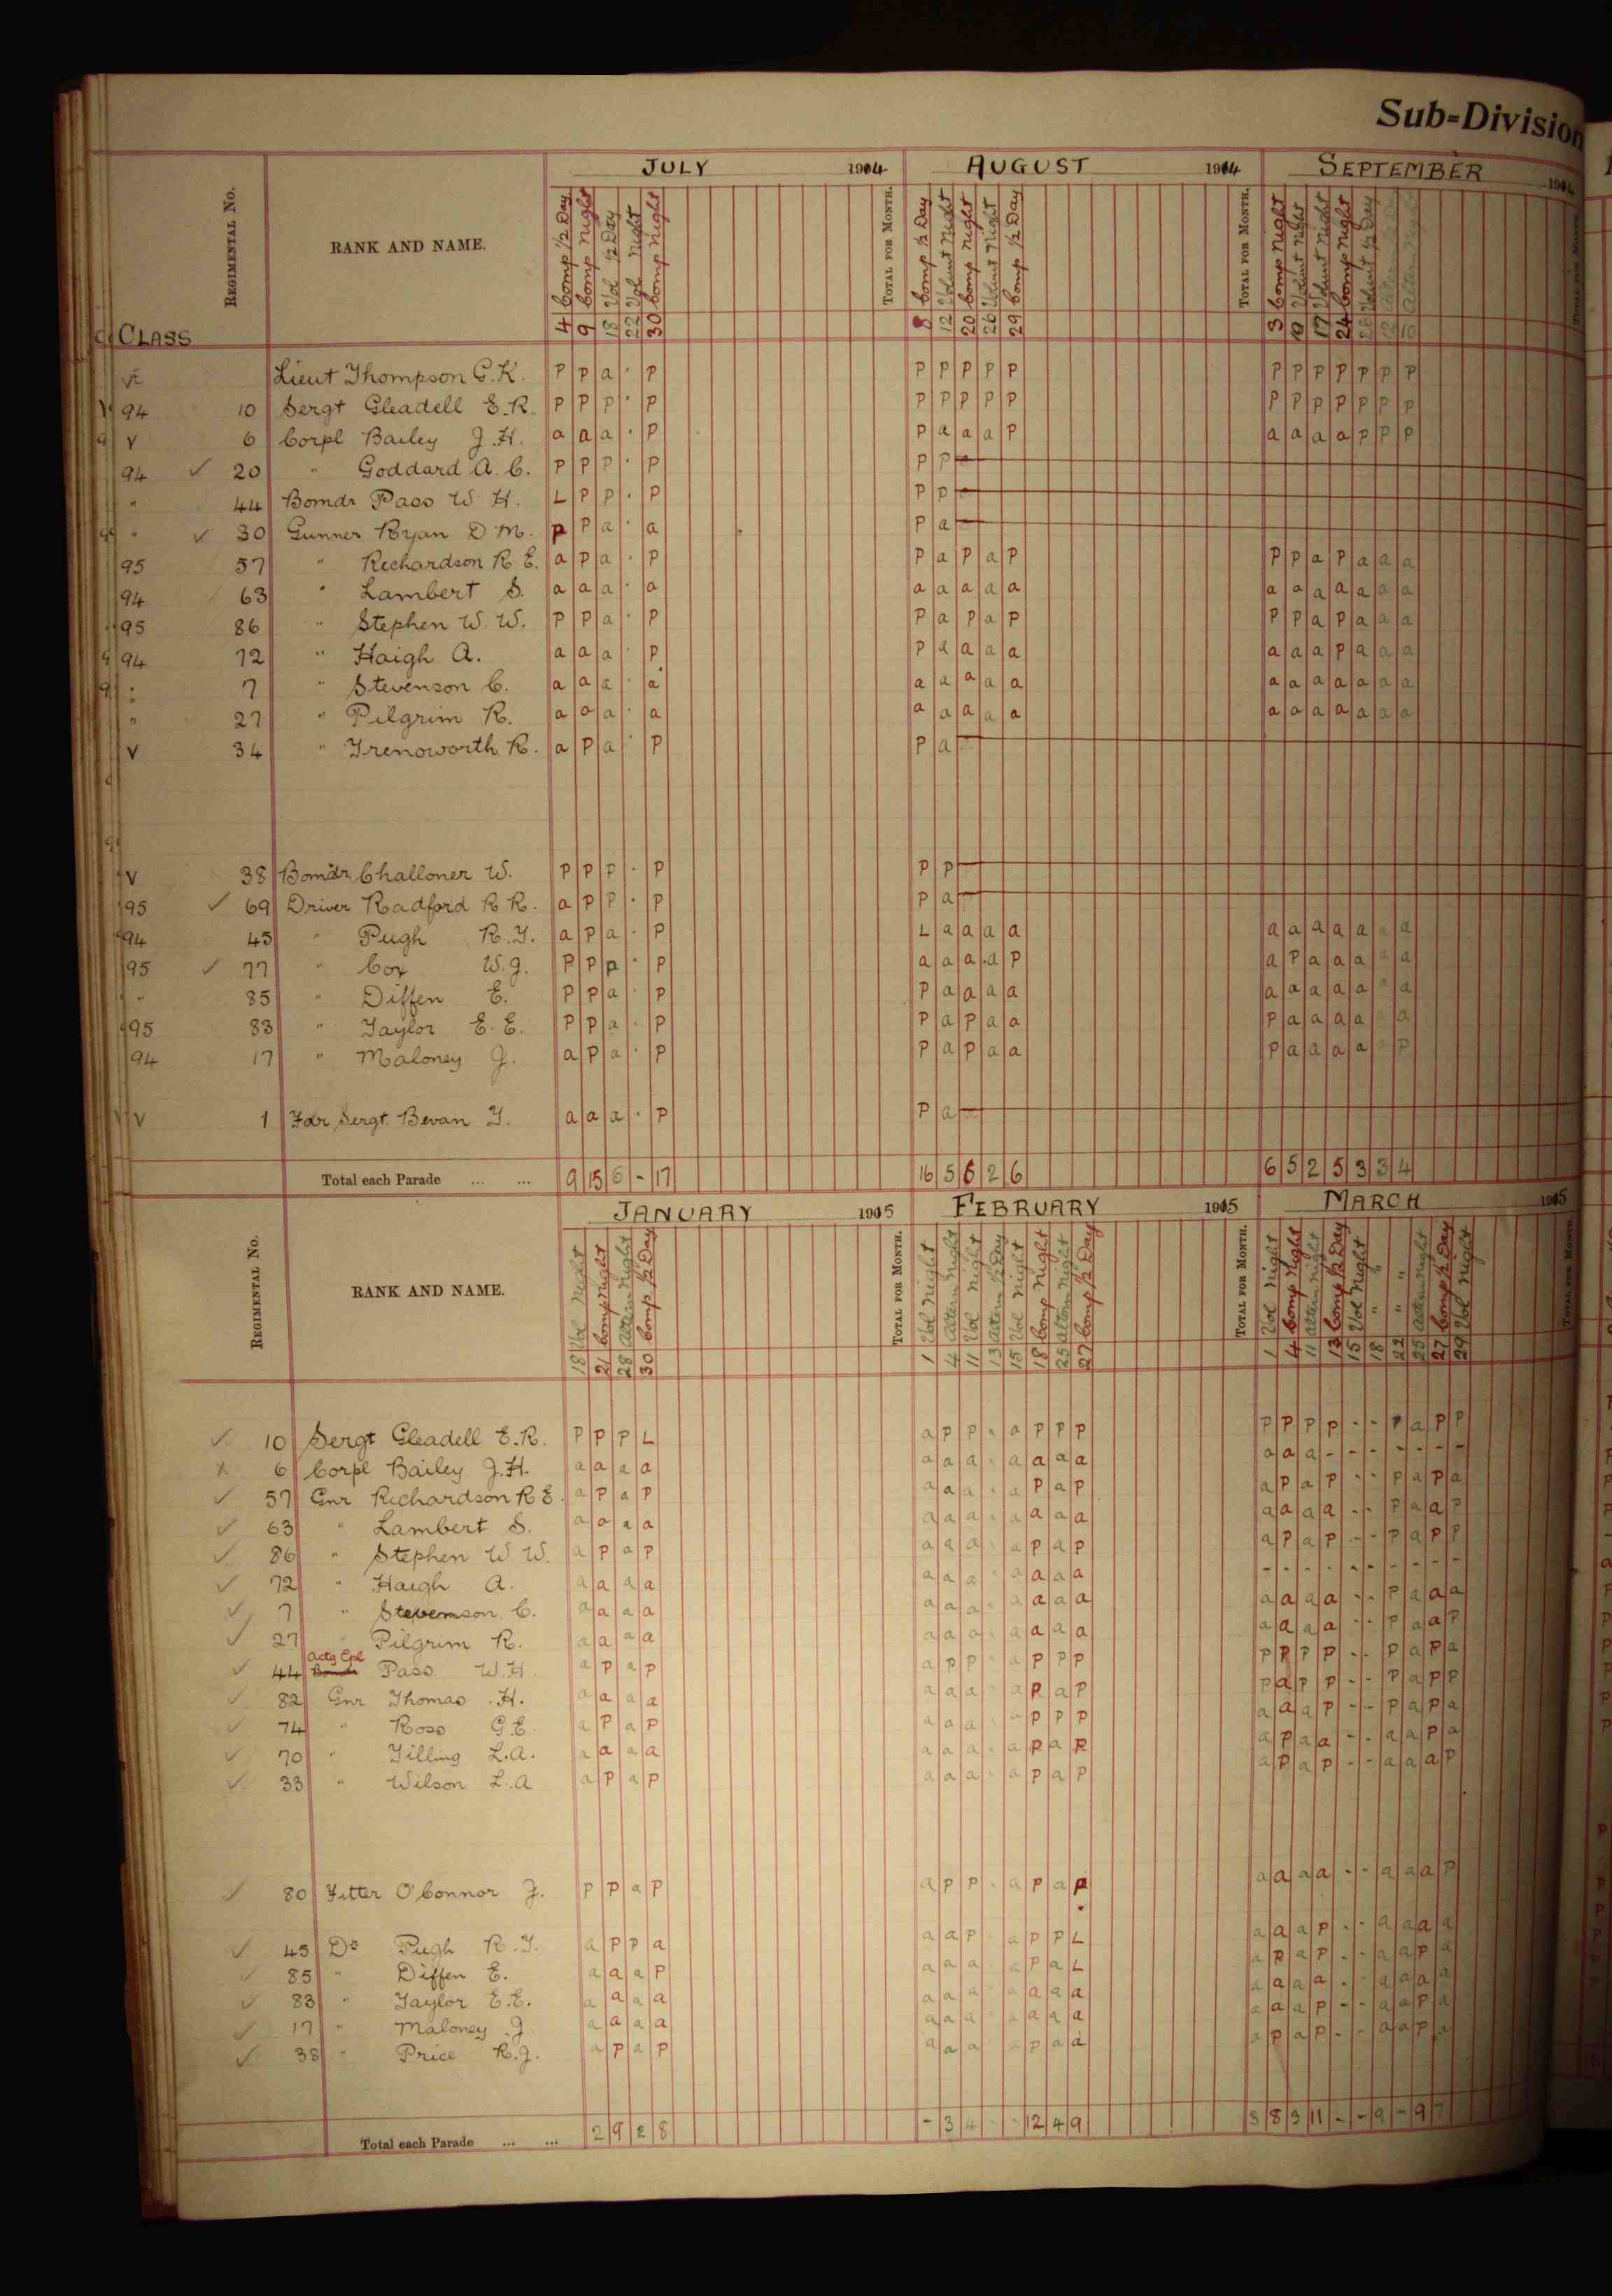 Sub-Division
JULY 1914 AUGUST 1914 SEPTEMBER 1914
CLASS REGIMENTAL NO. RANK AND NAME. 4 Comp ½ Day 9 Comp Night 18 Vol ½ Day 22 Vol Night 30 Comp Night TOTAL FOR MONTH. 8 Comp ½ Day 12 Volunt Night 20 Comp Night 26 Volunt Night 29 Comp ½ Day TOTAL FOR MONTH. 3 Comp Night Volunt Night 17 Volunt Night 24 Comp Night Volunt ½ Day
Lieut Thompson G.K. P P a · P P P P P P P P P P P P P
94 10 Sergt Gleadell E.R. P P P · P P P P P P P P P P P P P
V 6 Corpl Bailey J.H. a a a · P P a a a P a a a a P P P
94 ✓ 20 " Goddard A.C. P P P · P P P
" 44 Bomdr Pass W.H. L P P · P P P
" ✓ 30 Gunner Ryan D.M. P P a · a P a
95 57 " Richardson R E. a P a · P P a P a P P P a P a a a
94 63 " Lambert S. a a a · a a a a a a a a a a a a a
95 86 " Stephen W.W. P P a · P P a P a P P P a P a a a
94 72 " Haigh A. a a a · P P a a a a a a a P a a a
" 7 " Stevenson C. a a a · a a a a a a a a a a a a a
" 27 " Pilgrim R. a a a · a a a a a a a a a a a a a
V 34 " Trenoworth R. a P a · P P a
V 38 Bomdr Challoner W. P P P · P P P
95 ✓ 69 Driver Radford R R. a P P · P P a
94 45 " Pugh R.T. a P a · P L a a a a a a a a a a a
95 ✓ 77 " Cox W.J. P P P · P a a a a P a P a a a a a
" 85 " Diffen E. P P a · P P a a a a a a a a a a a
95 83 " Taylor E.E. P P a · P P a P a a P a a a a a a
94 17 " Maloney J. a P a · P P a P a a P a a a a P
V 1 Far Sergt. Bevan T. a a a · P P a
Total each Parade ... ... 9 15 6 - 17 16 5 6 2 6 6 5 2 5 3 3 4
JANUARY 1915 FEBRUARY 1915 MARCH 1915
REGIMENTAL NO. RANK AND NAME. 18 Vol Night 21 Comp Night 28 Altern Night 30 Comp ½ Day TOTAL FOR MONTH. 1 Vol Night 4 Altern Night 11 Vol Night 13 Altern ½ Day 15 Vol Night 18 Comp Night 25 Altern Night 27 Comp ½ Day TOTAL FOR MONTH. 1 Vol Night 4 Comp Night 11 Altern Night 13 Comp ½ Day 15 Vol Night 18 " 22 " " 25 Altern Night 27 Comp ½ Day 29 Vol Night TOTAL FOR MONTH.
✓ 10 Sergt Gleadell E.R. P P P L a P P · a P P P P P P P - - P a P P
6 Corpl Bailey J.H. a a a a a a a · a a a a a a a - - - - - - -
✓ 57 Gnr Richardson R E. a P a P a a a · a P a P a P a P - - P a P a
✓ 63 " Lambert S. a a a a a a a · a a a a a a a a - - P a a P
✓ 86 " Stephen W W. a P a P a a a · a P a P a P a P - - P a P P
✓ 72 " Haigh A. a a a a a a a · a a a a - - - - - - - - - -
✓ 7 " Stevenson. C. a a a a a a a · a a a a a a a a - - P a a a
✓ 27 " Pilgrim R. a a a a a a a · a a a a a a a a - - P a a P
✓ 44 Actg Cpl Pass W.H. a P a P a P P · a P P P P P P P - - P a P a
✓ 82 Gnr Thomas H. a a a a a a a · a P a P P a P P - - P a P P
✓ 74 " Ross G.E. a P a P a a a · a P P P a a a P - - P a P a
✓ 70 " Tilling L.A. a a a a a a a · a P a P a P a a - - a a P a
✓ 33 " Wilson L.A a P a P a a a · a P a P a P a P - - a a a P
✓ 80 Fitter O'Connor J. P P a P a P P · a P a P a a a a - - a a a P
✓ 45 Dr Pugh R.T. a P P a a a P · a P P L a a a P - - a a a a
✓ 85 " Diffen E. a a a P a a a · a P a L a P a P - - a a P a
✓ 83 " Taylor E.E. a a a a a a a · a a a a a a a a - - a a a a
✓ 17 " Maloney J a a a a a a a · a a a a a a a P - - a a P a
✓ 38 " Price R.J. a P a P a a a · a P a a a P a P - - a a P a
Total each Parade ... ... 2 9 2 8 - 3 4 - - 12 4 9 3 8 3 11 - - 9 - 9 7